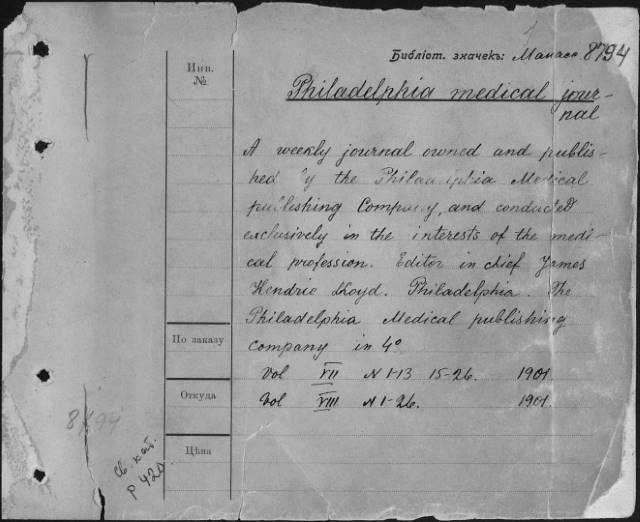 Библіот. значекъ: 8794
Инв.
№
Philadelphia medical jour-
nal
A weekly journal owned and publis-
hed by the Philadelphia Medical
publishing Company, and conducted
exclusively in the interests of the medi-
cal profession. Editor in chief James
Hendrie Lloyd. Philadelphia. The
Philadelphia Medical publishing
company in 4°
По заказу
Vol VII N 1-13 15-26. 1901.
Откуда
Vol VIII N 1-26. 1901.
8794
Цѣна
Св. кат.
р 420